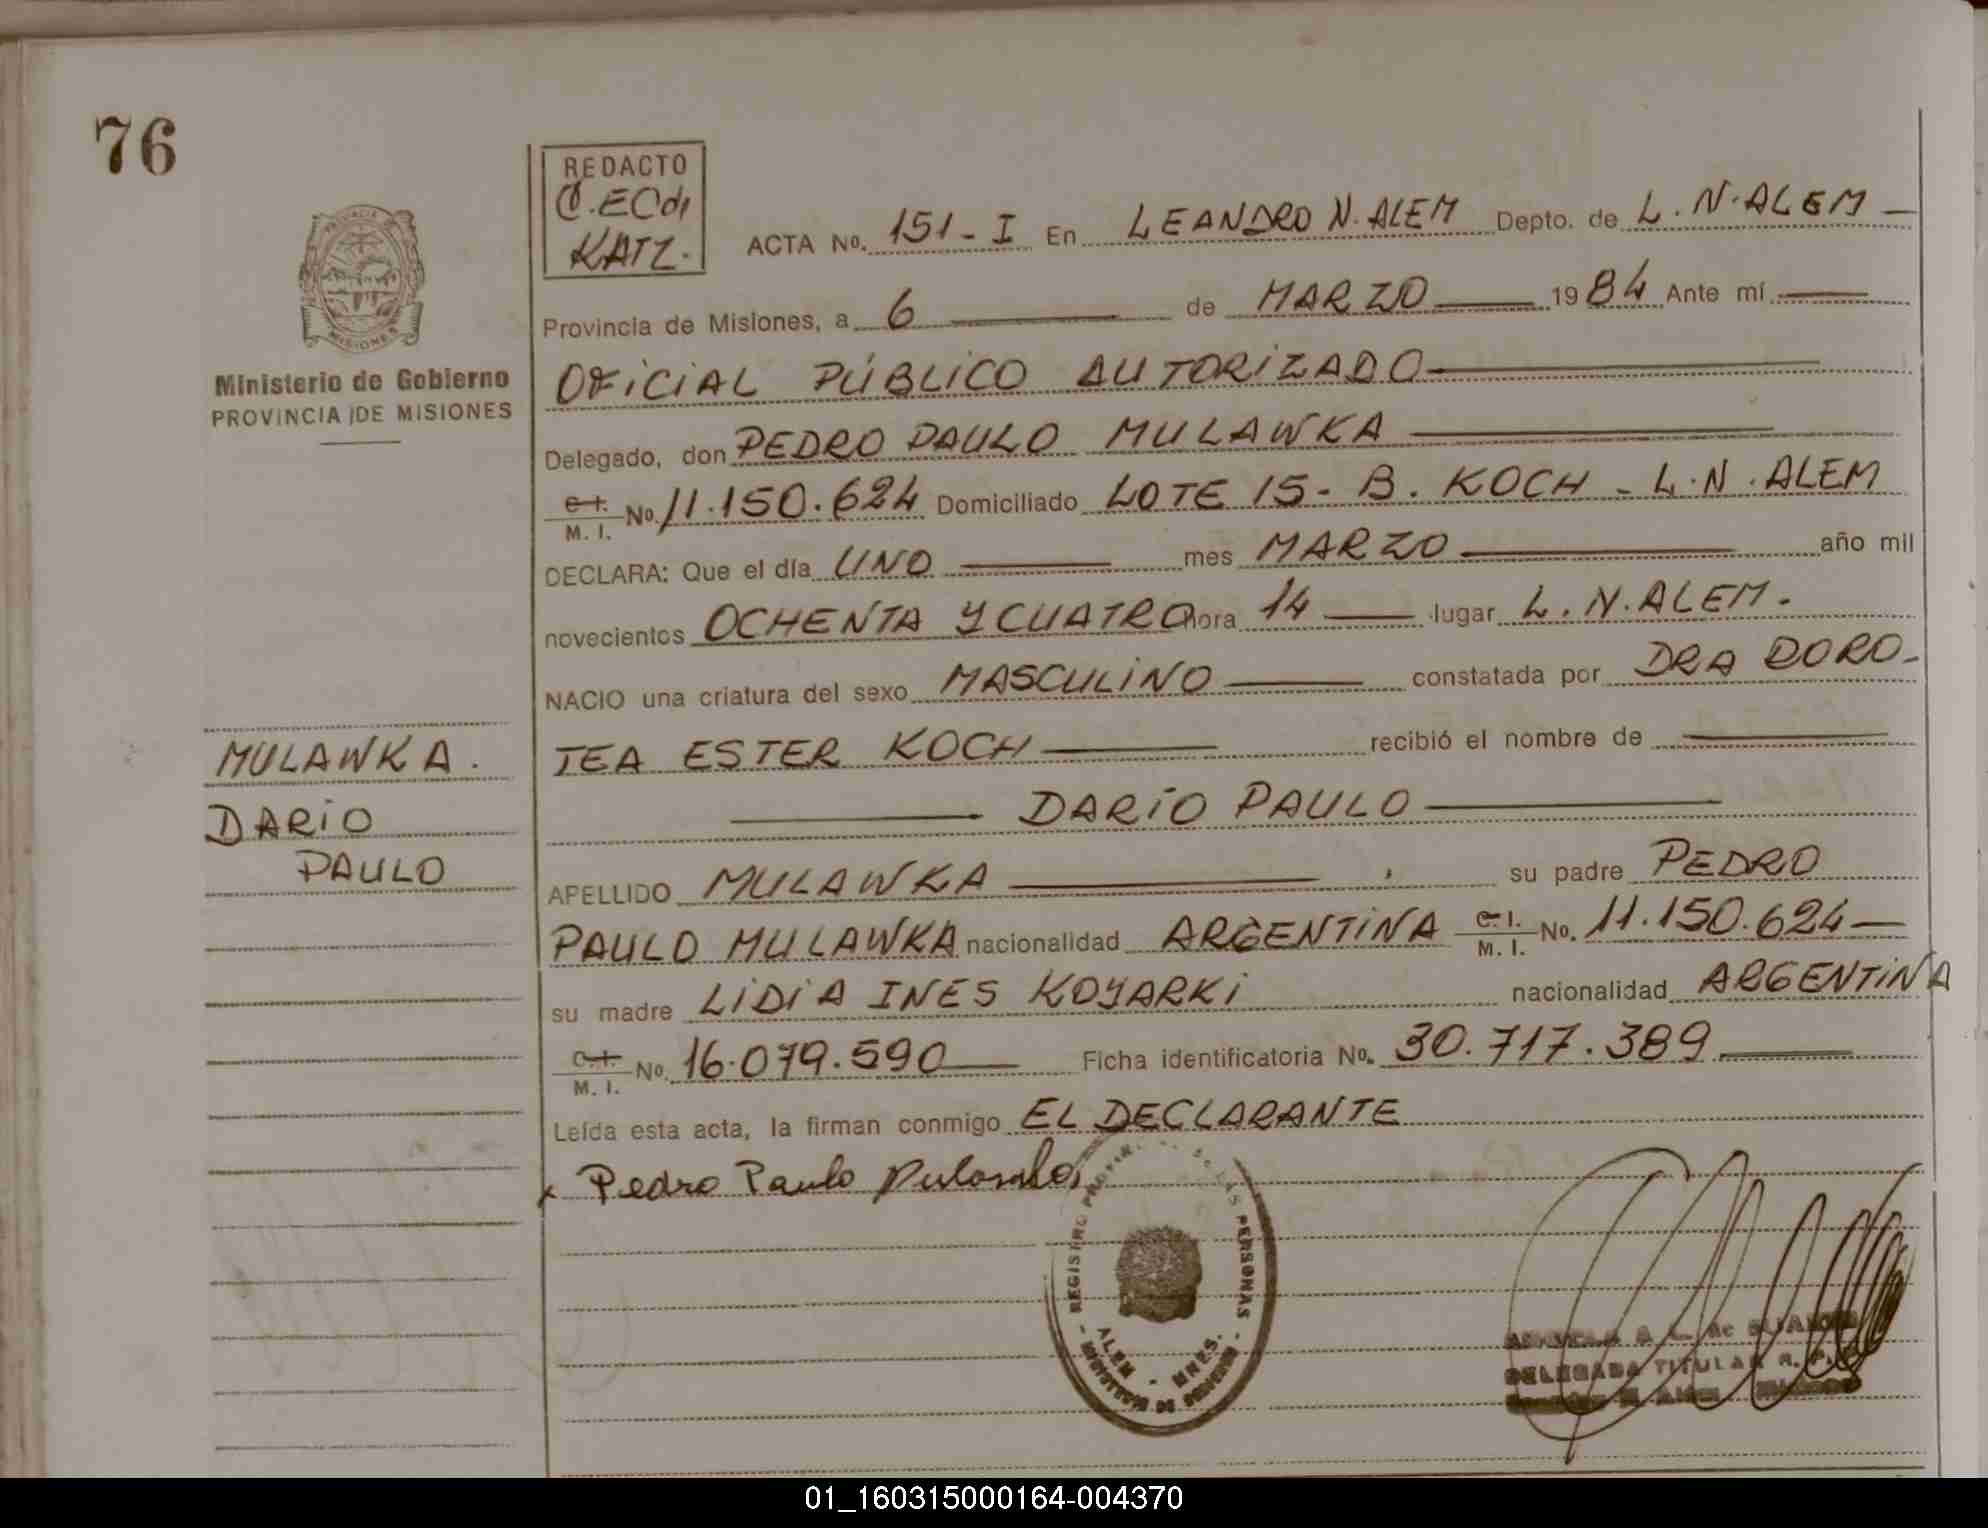 76
REDACTO
C.ECdi
KATZ.
ACTA No. 151-I En LEANDRO N. ALEM Depto. de L.N.ALEM
PROVINCIA
MISIONES
Ministerio de Gobierno
PROVINCIA DE MISIONES
Provincia de Misiones, a 6 de MARZO 1984 Ante mí
OFICIAL PÚBLICO AUTORIZADO
Delegado, don PEDRO PAULO MULAWKA
C.I. M. I. No. 11.150.624 Domiciliado LOTE 15 - B. KOCH - L.N.ALEM
DECLARA: Que el día UNO mes MARZO año mil
novecientos OCHENTA Y CUATRO hora 14 lugar L.N.ALEM.
NACIO una criatura del sexo MASCULINO constatada por DRA DORO-
TEA ESTER KOCH recibió el nombre de
DARÍO PAULO
MULAWKA.
DARÍO
PAULO
APELLIDO MULAWKA su padre PEDRO
PAULO MULAWKA nacionalidad ARGENTINA C.I. M. I. No. 11.150.624
su madre LIDIA INES KOYARKI nacionalidad ARGENTINA
C.I. M. I. No. 16.079.590 Ficha identificatoria No. 30.717.389
Leída esta acta, la firman conmigo EL DECLARANTE
x Pedro Paulo
REGISTRO DE LAS PERSONAS
ALEM - MNES.
MINISTERIO DE GOBIERNO
DELEGADA TITULAR R. P.
01_160315000164-004370